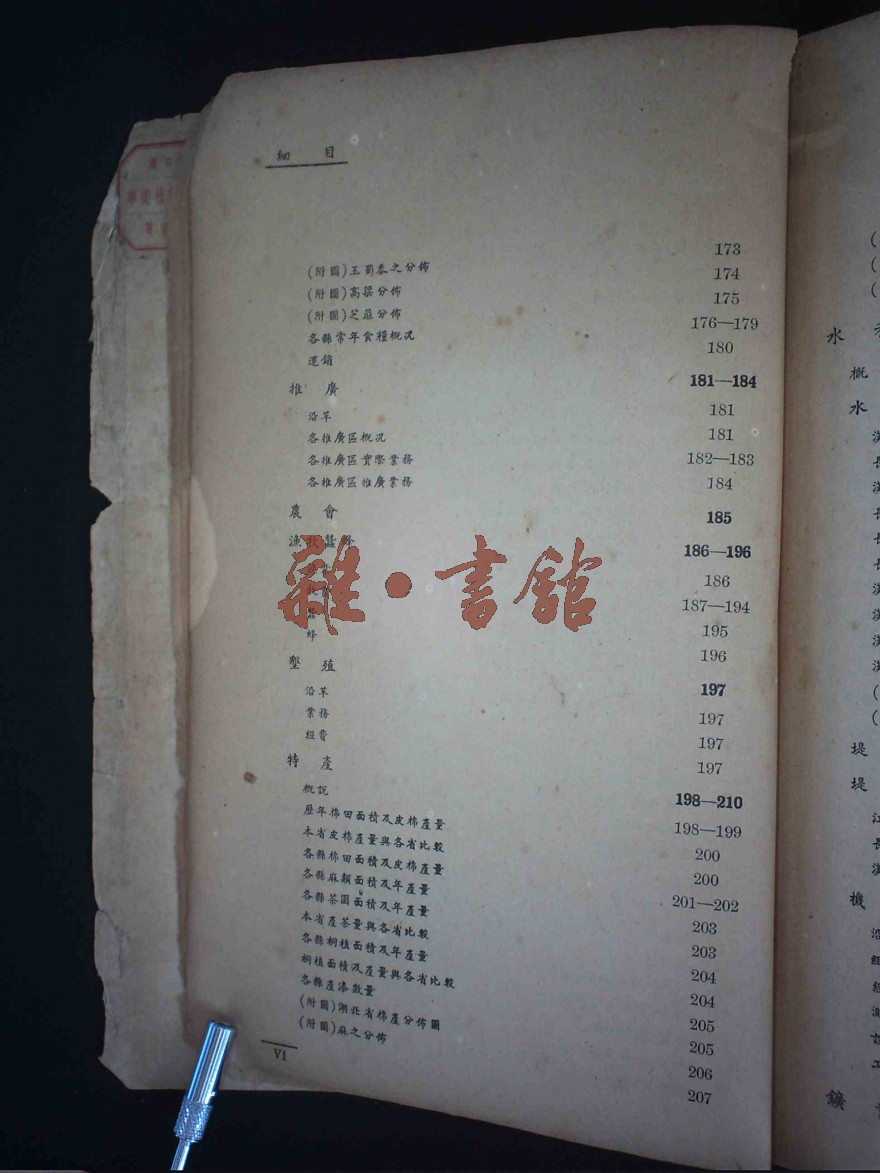 細目
(附圖)玉蜀黍之分佈 173
(附圖)高粱分佈 174
(附圖)芝蔴分佈 175
各縣常年食糧概況 176—179
運銷 180
推廣 181—184
沿革 181
各推廣區概況 181
各推廣區實際業務 182—183
各推廣區推廣業務 184
農會 185
漁牧蠶蜂 186—196
186
187—194
蠶 195
蜂 196
墾殖 197
沿革 197
業務 197
經費 197
特產 198—210
概說 198—199
歷年棉田面積及皮棉產量 200
本省皮棉產量與各省比較 200
各縣棉田面積及皮棉產量 201—202
各縣麻類面積及年產量 203
各縣茶園面積及年產量 203
本省產茶量與各省比較 204
各縣桐植面積及年產量 204
桐植面積及產量與各省比較 205
各縣產漆數量 205
(附圖)湖北省棉產分佈圖 206
(附圖)麻之分佈 207
VI
雜·書館
水
概
水
堤
堤
機
鑛